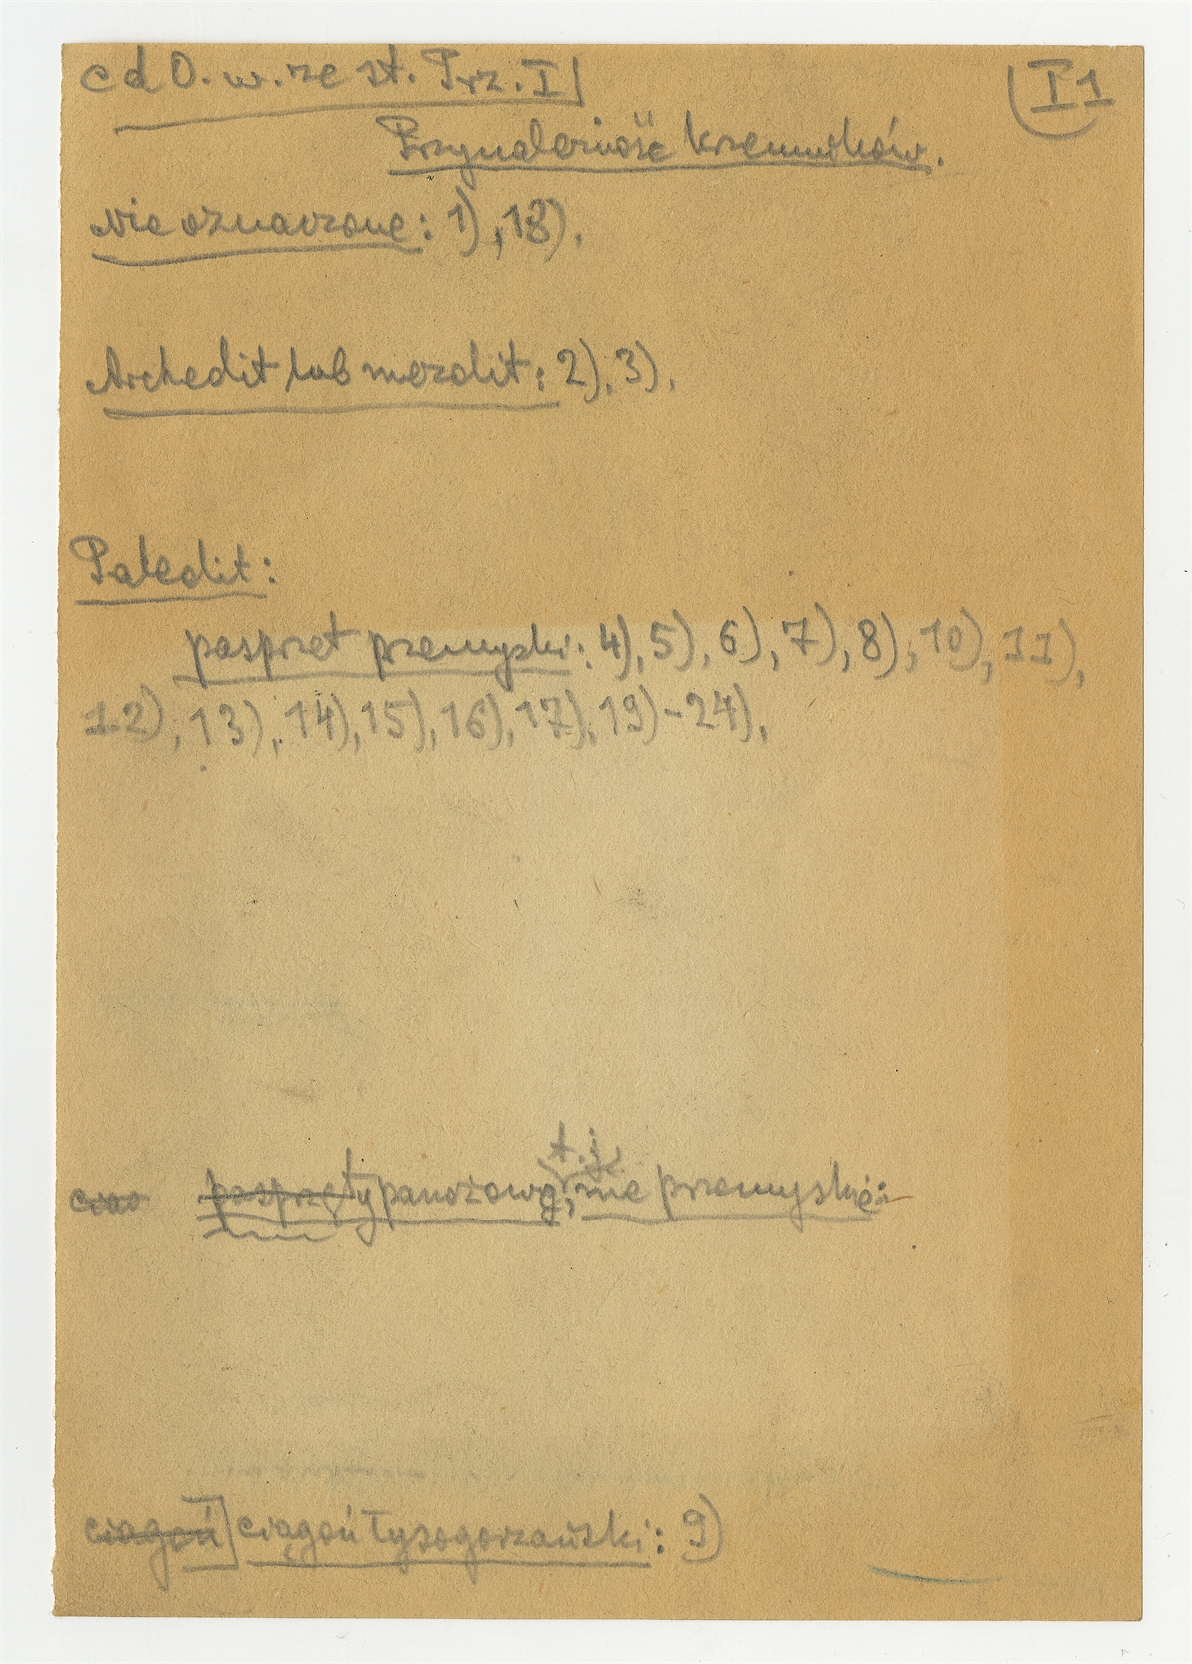 c d O. w. ze st. Prz. I
I 1
Przynależność krzemuków.
Nie oznaczone: 1), 18).
Archeolit lub mezolit: 2), 3),
Paleolit:
posprzęt przemyski: 4), 5), 6), 7), 8), 10), 11),
12), 13), 14), 15), 16), 17), 19)-24),
t. j.
posprzęty panożowe, nie przemyskie:
ciągoń ciągoń łysogorzański: 9)